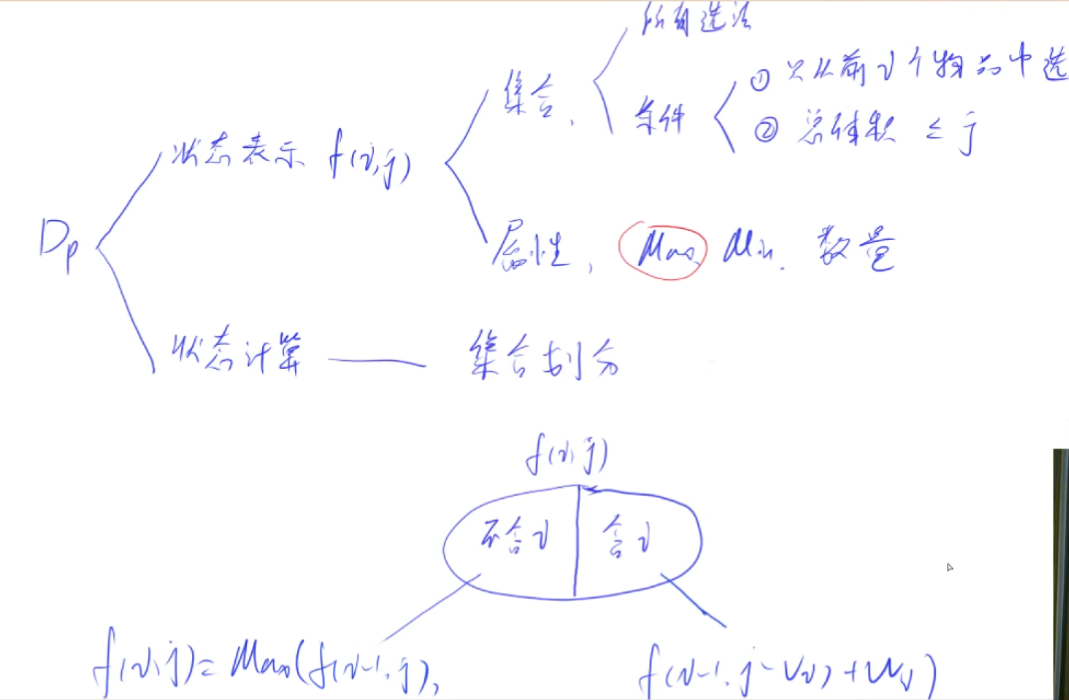 所有选法
集合、
条件
① 只从前i个物品中选
② 总体积 ≤ j
状态表示 f(i,j)
Dp
属性、Max, Min, 数量
状态计算
集合划分
f(i,j)
不含i
含i
f(i,j)= Max(f(i-1,j), f(i-1,j-vi)+wi)